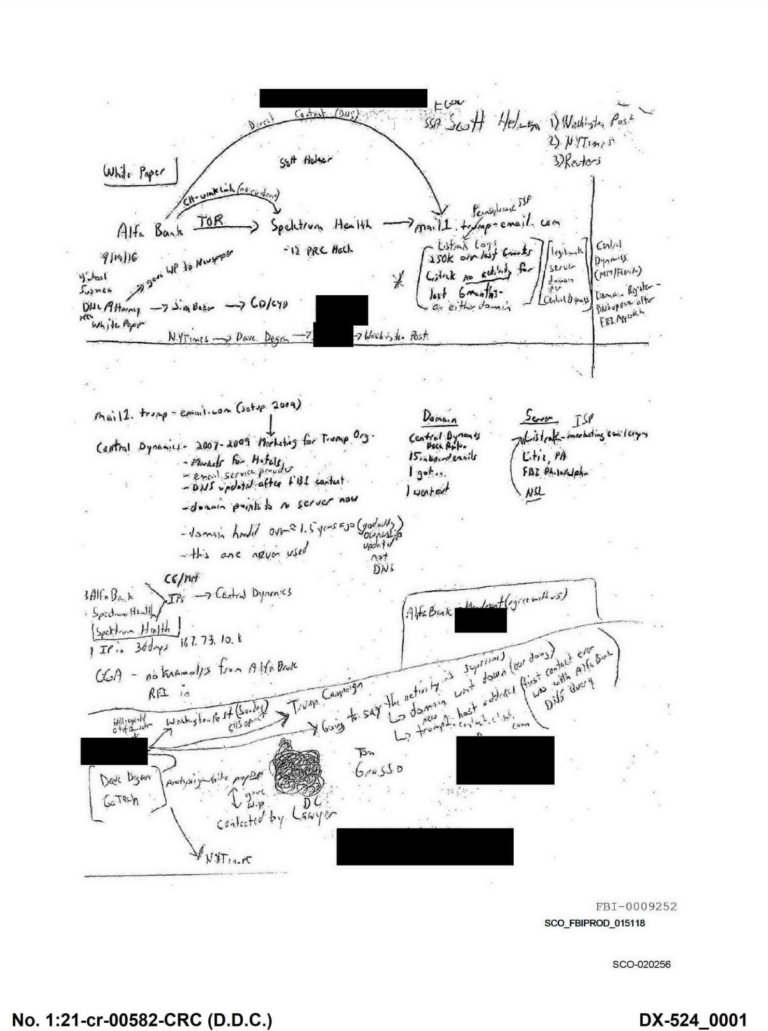 Direct Contact (DNS)
SSA Scott Hellman
1) Washington Post
2) NYTimes
3) Reuters
White Paper
Scott Hellman
Alfa Bank TOR Spektrum Health mail1.trump-email.com
Pennsylvania ISP
9/19/16
- 12 PRC Hack
Listrak Logs
250K over last 6 months
Listrak no activity for
last 6 months -
on either domain
legitimate
server
domain
Central Dynamics
Central
Dynamics
Domain Register -
DNS update after
FBI Approach
gave WP to Newspaper
DNC Attorney Jim Baker CD/CYD
White Paper
NYTimes Dave Dagon Washington Post
mail1.trump-email.com (setup 2009)
Central Dynamics - 2007-2009 Marketing for Trump Org.
- Markets for Hotels
- email service provider
- DNS updated after FBI contact
- domain points to no server now
- domain handed over ≈ 1.5 years ago (godaddy)
ownership
updated
not
DNS
- this one never used
Domain
Central Dynamics
Boca Raton
15 inbound emails
1 got
1 went out
Server ISP
Listrak - marketing email company
Litiz, PA
FBI Philadelphia
NSL
Alfa Bank
Spectrum Health
Spektrum Health
IPs Central Dynamics
1 IP in 30 days 167.73.10.8
from Alfa Bank
RFI in
Alfa Bank - Mandiant (agree with us)
Washington Post (Sunday)
Trump Campaign
Going to say the activity is suspicious
domain went down (our doing)
new host added (first contact ever
was with Alfa Bank
DNS query
Dave Dagon
GaTech
Analysis white paper
gave
Tom
Grasso
DC
contacted by Lawyer
NYTimes
FBI-0009252
SCO_FBIPROD_015118
SCO-020256
No. 1:21-cr-00582-CRC (D.D.C.)
DX-524_0001